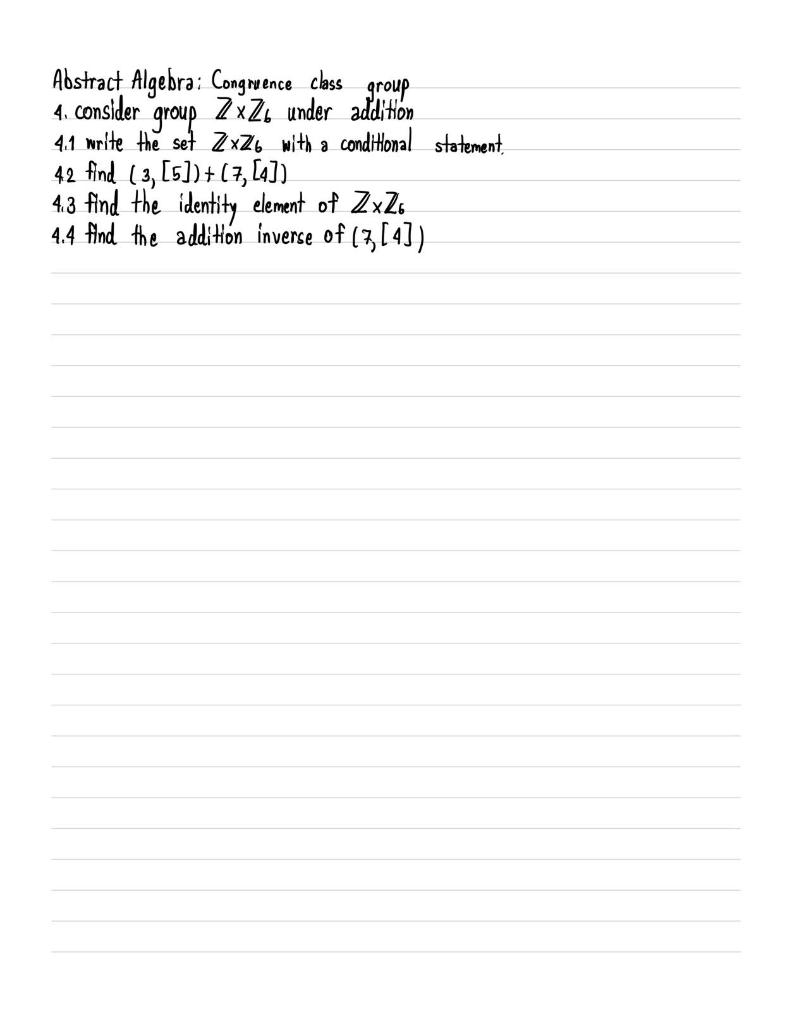 Abstract Algebra: Congruence class group
4. consider group ℤ×ℤ₆ under addition
4.1 write the set ℤ×ℤ₆ with a conditional statement.
4.2 find (3,[5])+(7,[4])
4.3 find the identity element of ℤ×ℤ₆
4.4 find the addition inverse of (7,[4])